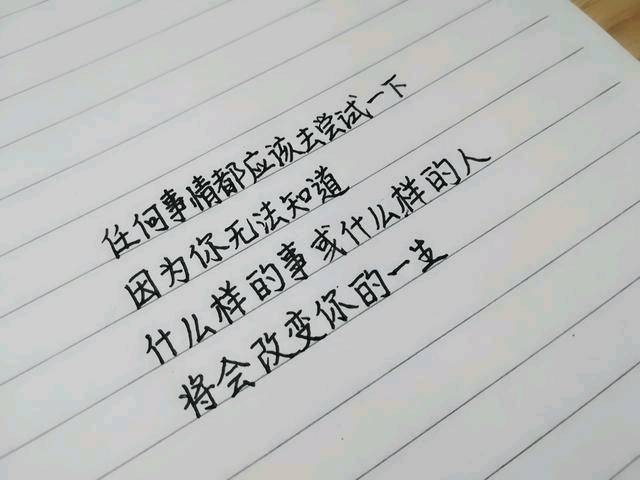 任何事情都应该去尝试一下
因为你无法知道
什么样的事或什么样的人
将会改变你的一生